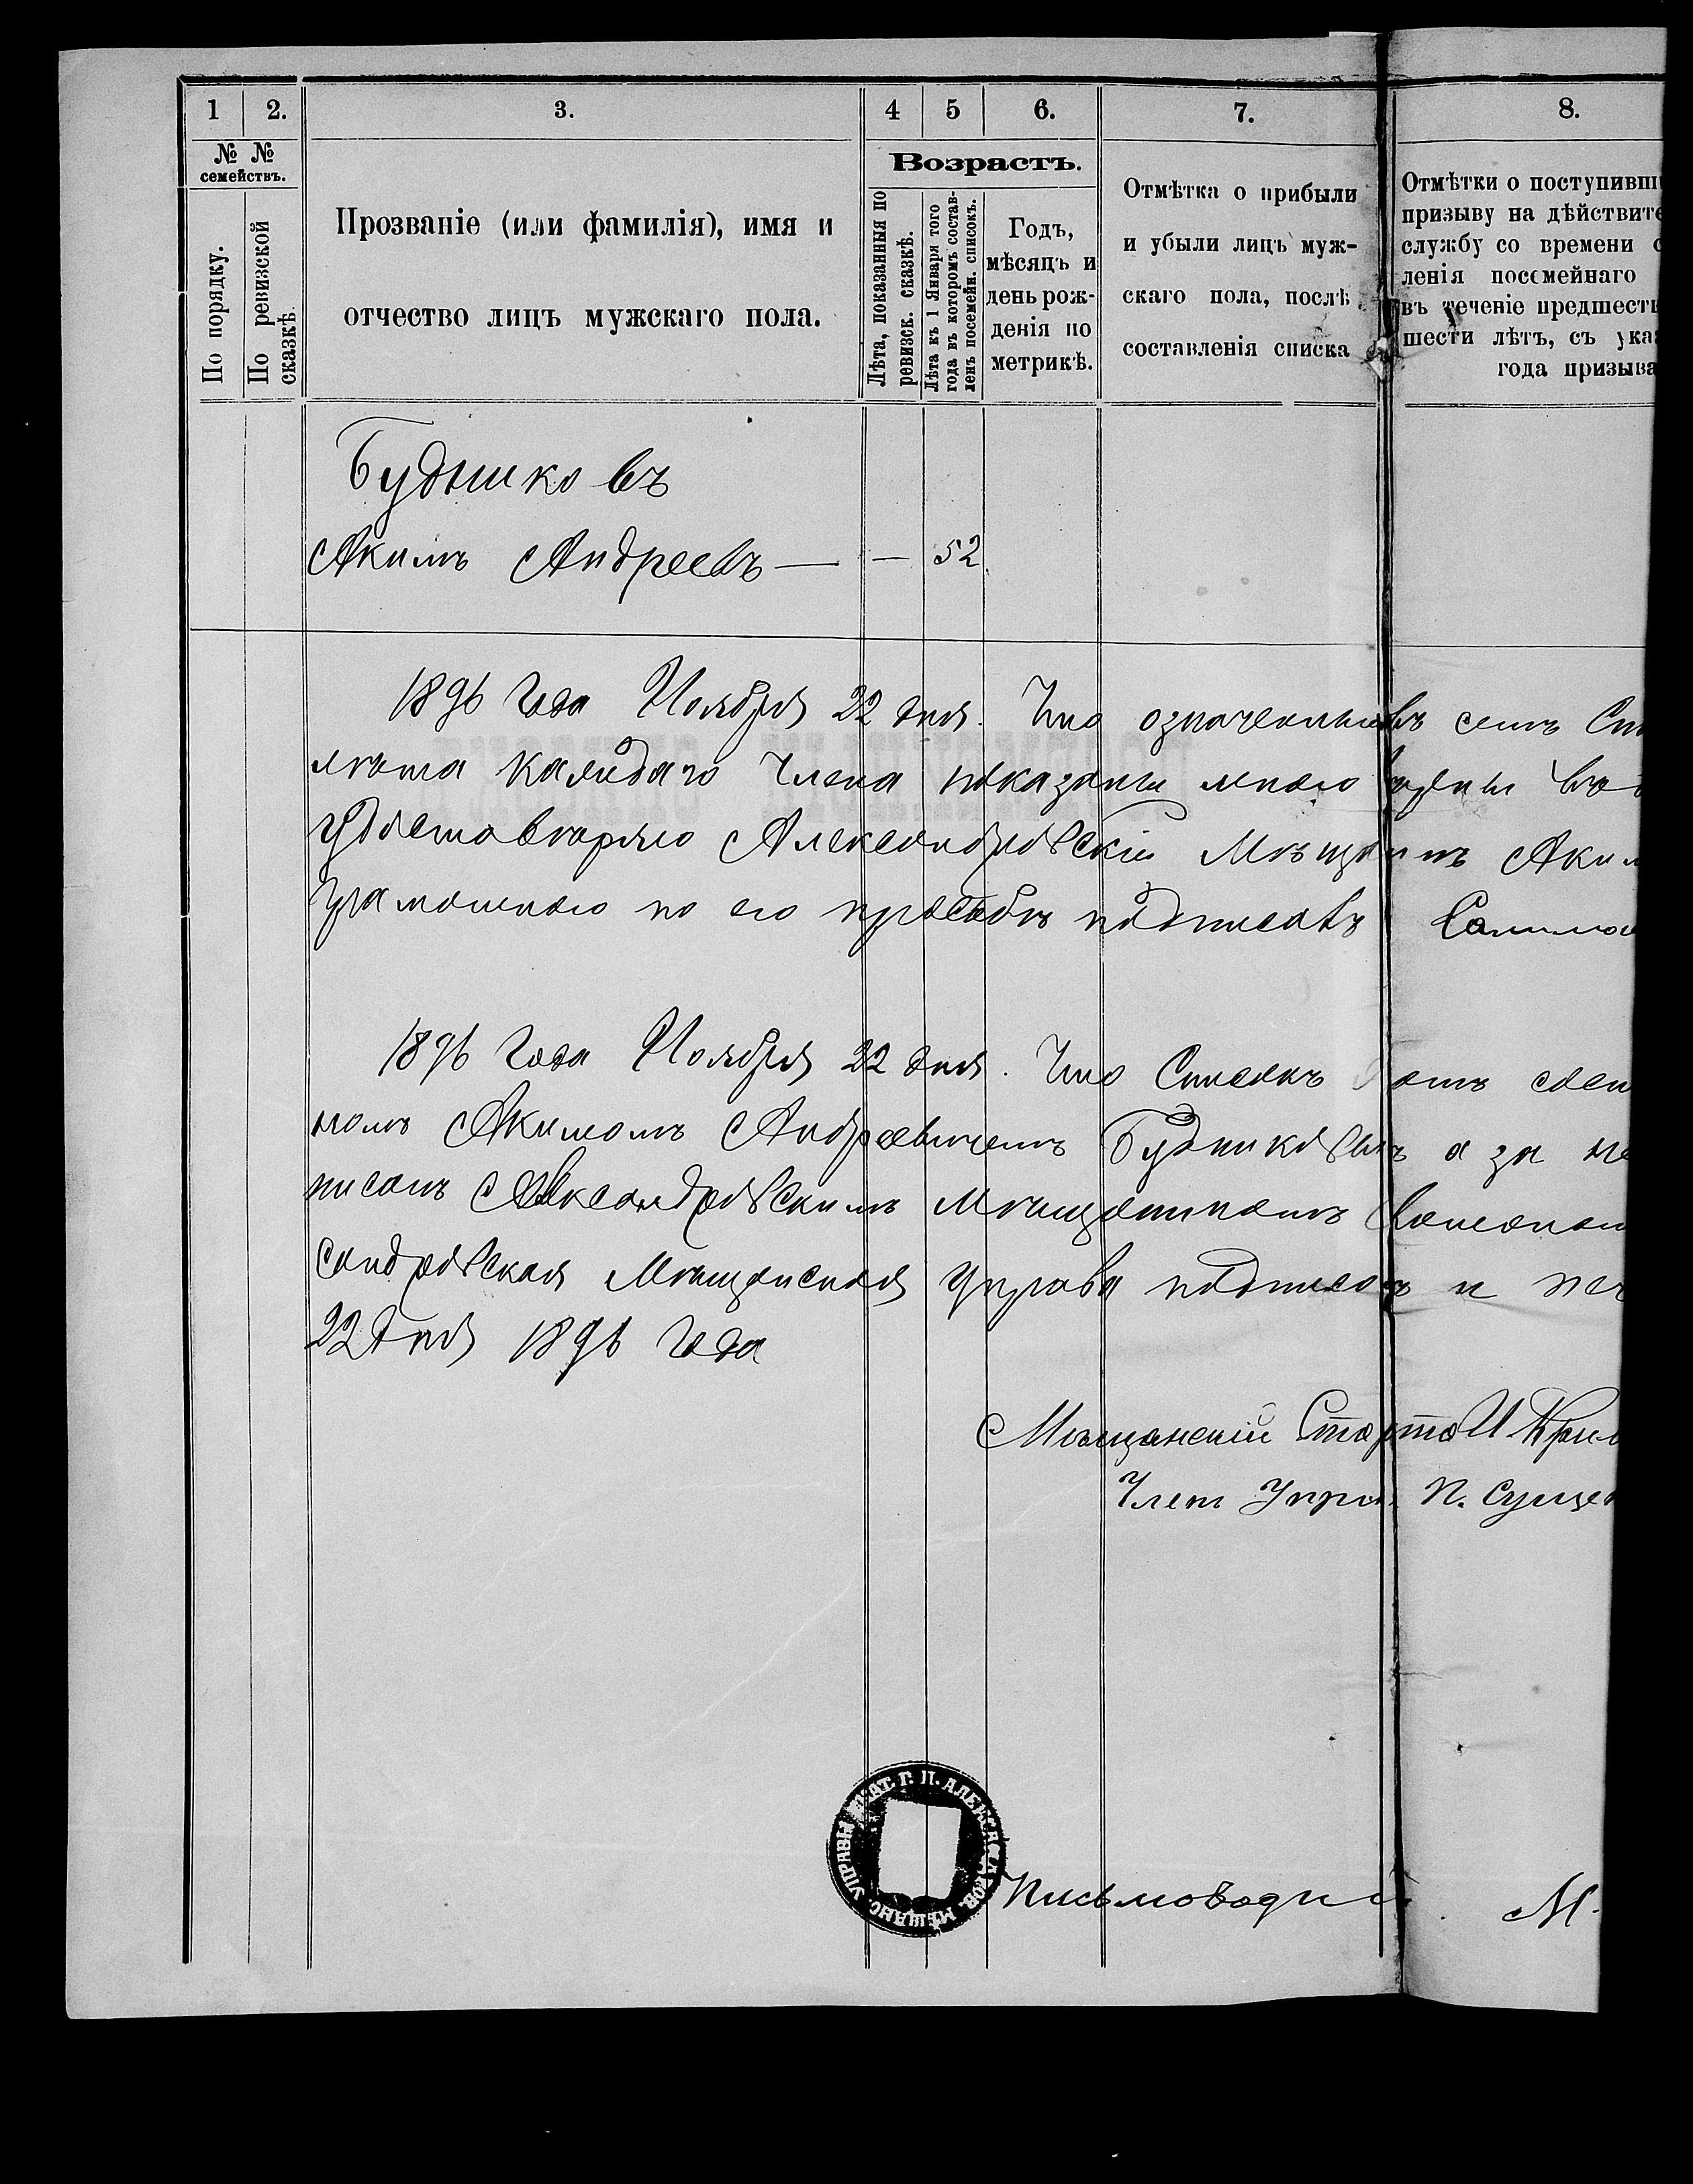 1 2. 3. 4 5 6. 7. 8.
№ №
семействъ.
По порядку.
По ревизской
сказкѣ.
Прозваніе (или фамилія), имя и
отчество лицъ мужскаго пола.
Возрастъ.
Лѣта, показанныя по
ревизск. сказкѣ.
Лѣта къ 1 Января того
года въ которомъ состав-
ленъ посемейн. списокъ.
Годъ,
мѣсяцъ и
день рож-
денія по
метрикѣ.
Отмѣтка о прибыли
и убыли лицъ муж-
скаго пола, послѣ
составленія списка
Отмѣтки о поступивши
призыву на дѣйствите
службу со времени с
ленія посемейнаго
въ теченіе предшеств
шести лѣтъ, съ ука
года призыва
Будниковъ
Акимъ Андреевъ — — 52
1896 года Ноября 22 дня. Что означенные въ семъ Сп
лѣта каждаго члена показаны мною
удостовѣряю Александровскій Мѣщанинъ Аким
грамотнаго по его просьбѣ подписавъ
1896 года Ноября 22 дня. Что Списокъ
номъ Акимомъ Андреевичемъ Будниковымъ а за не
писалъ Александровскимъ Мѣщаниномъ
сандровская Мѣщанская Управа подписью и печ
22 дня 1896 года
Мѣщанскій Староста И.
Членъ Управ П. Сущен
УПРАВЫ ПЕЧАТ. Г. П. АЛЕКСАНДРОВ. МѢЩАНС.
Письмоводи М.